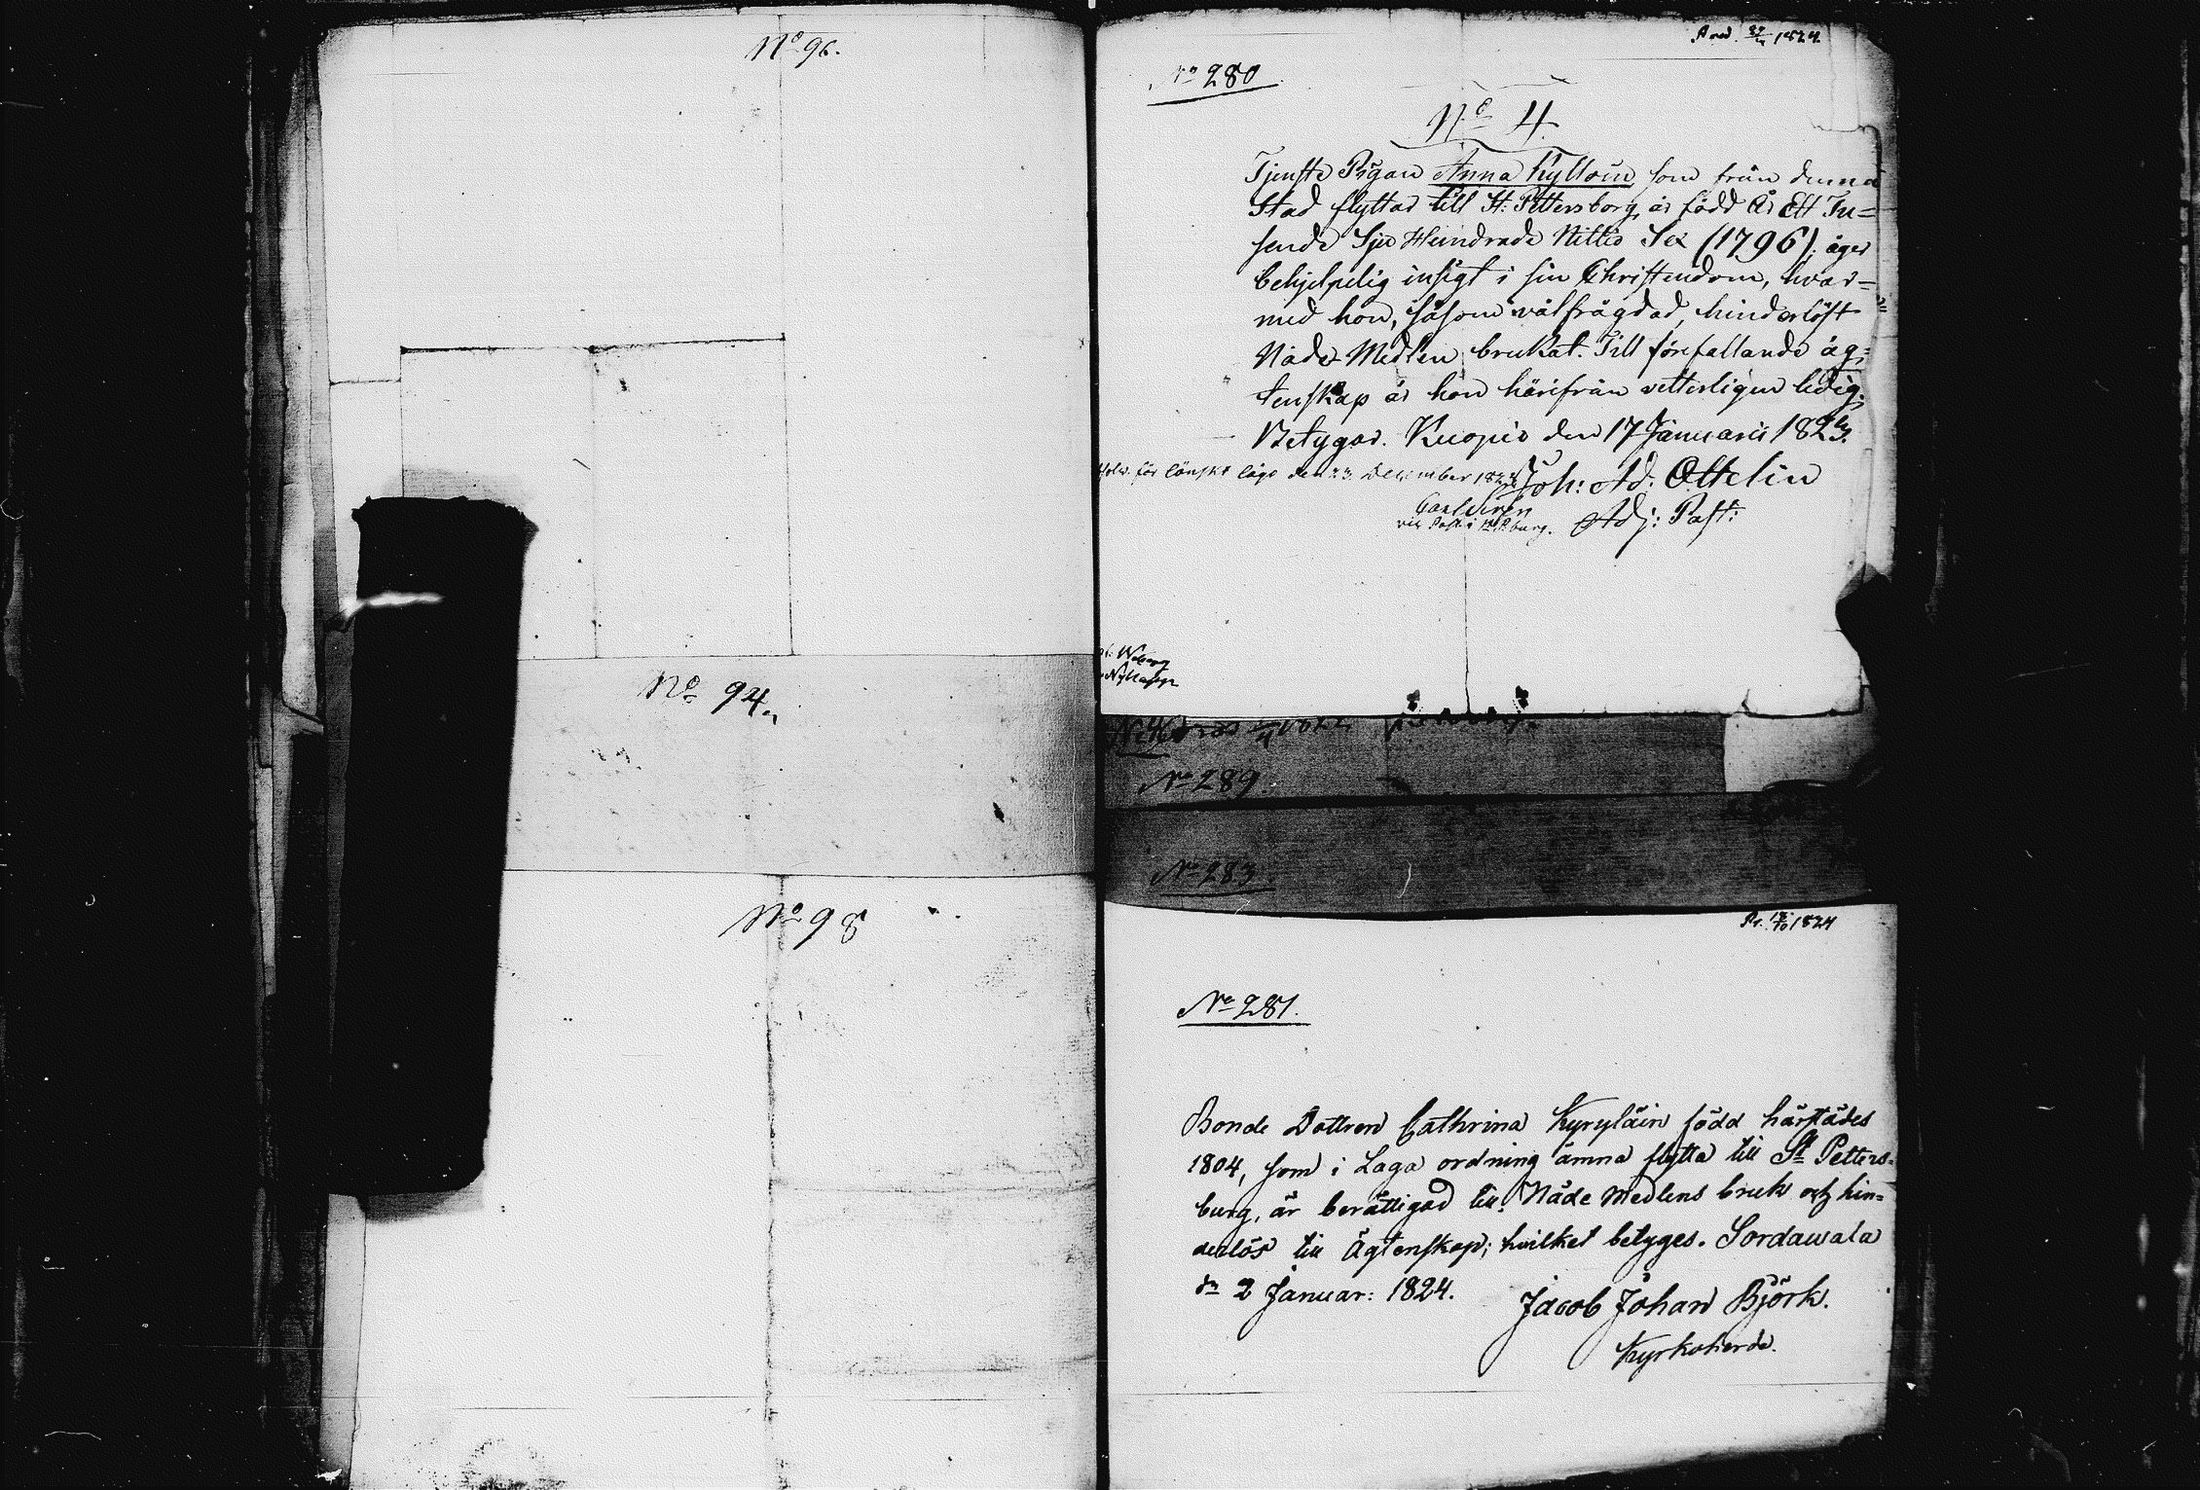 No 96.
No 94.
No 98
No 280
No 4.
Tjenste Pigan Anna Kyllöin som från denna
Stad flyttar till St: Pettersborg, är född År Ett Tu=
sende Sju Hundrade Nittio Sex (1796); äger
behjelpelig insigt i sin Christendom, hvar=
med hon, såsom välfrägdad, hinderlöst
Nåde-Medlen brukat. Till förefallande äg=
tenskap är hon härifrån vetterligen ledig.
Betygar. Kuopio den 17 Januarii 1823.
den 23 December 182
Joh: Ad: Ottelin
Carl Sirén
Adj: Past:
No 289
No 283
1824
No 281.
Bonde Dottren Cathrina Kyryläin född härstädes
1804, som i Laga ordning ämna flytta till St Petters=
burg, är berättigad till Nåde Medlens bruk och hin=
derlös till Ägtenskap; hvilket betyges. Sordawala
dn 2 Januar: 1824.
Jacob Johan Björk.
Kyrkoherde.